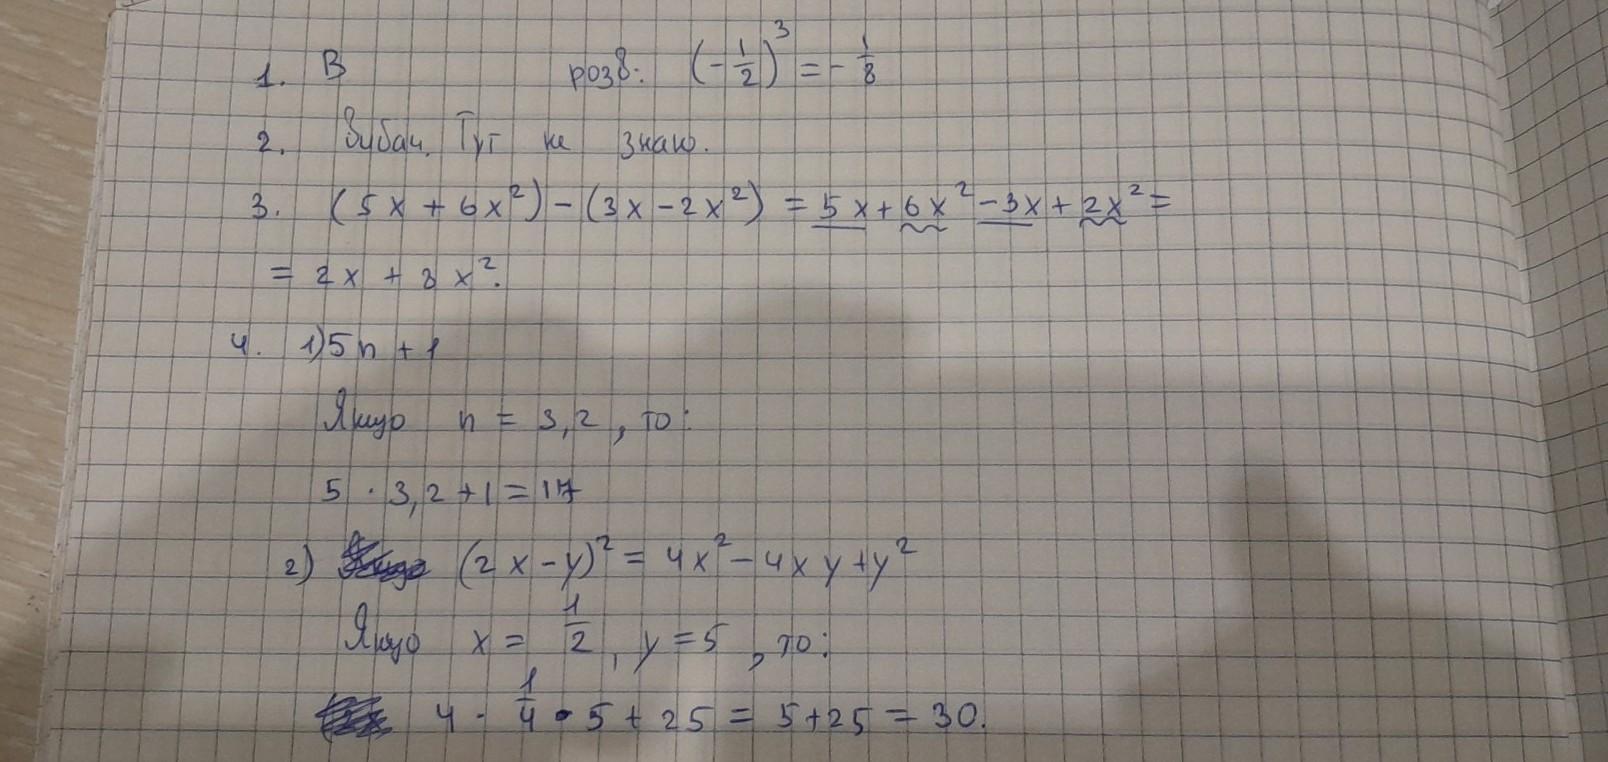 1. В розв: (-1/2)³ = - 1/8
2. Вибач. Тут не знаю.
3. (5x + 6x²) - (3x - 2x²) = 5x + 6x² - 3x + 2x² =
= 2x + 8x².
4. 1) 5n + 1
Якщо n = 3,2, то:
5 · 3,2 + 1 = 17
2) (2x - y)² = 4x² - 4xy + y²
Якщо x = 1/2, y = 5, то:
4 · 1/4 · 5 + 25 = 5 + 25 = 30.